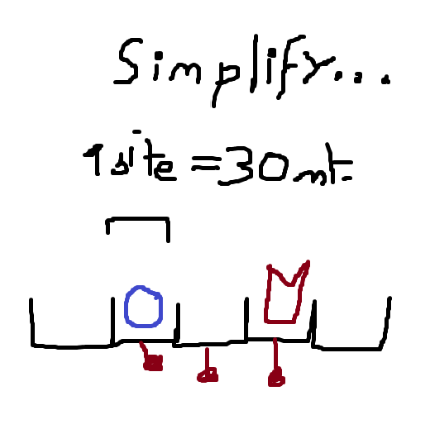 Simplify...
1 site = 30 mt.